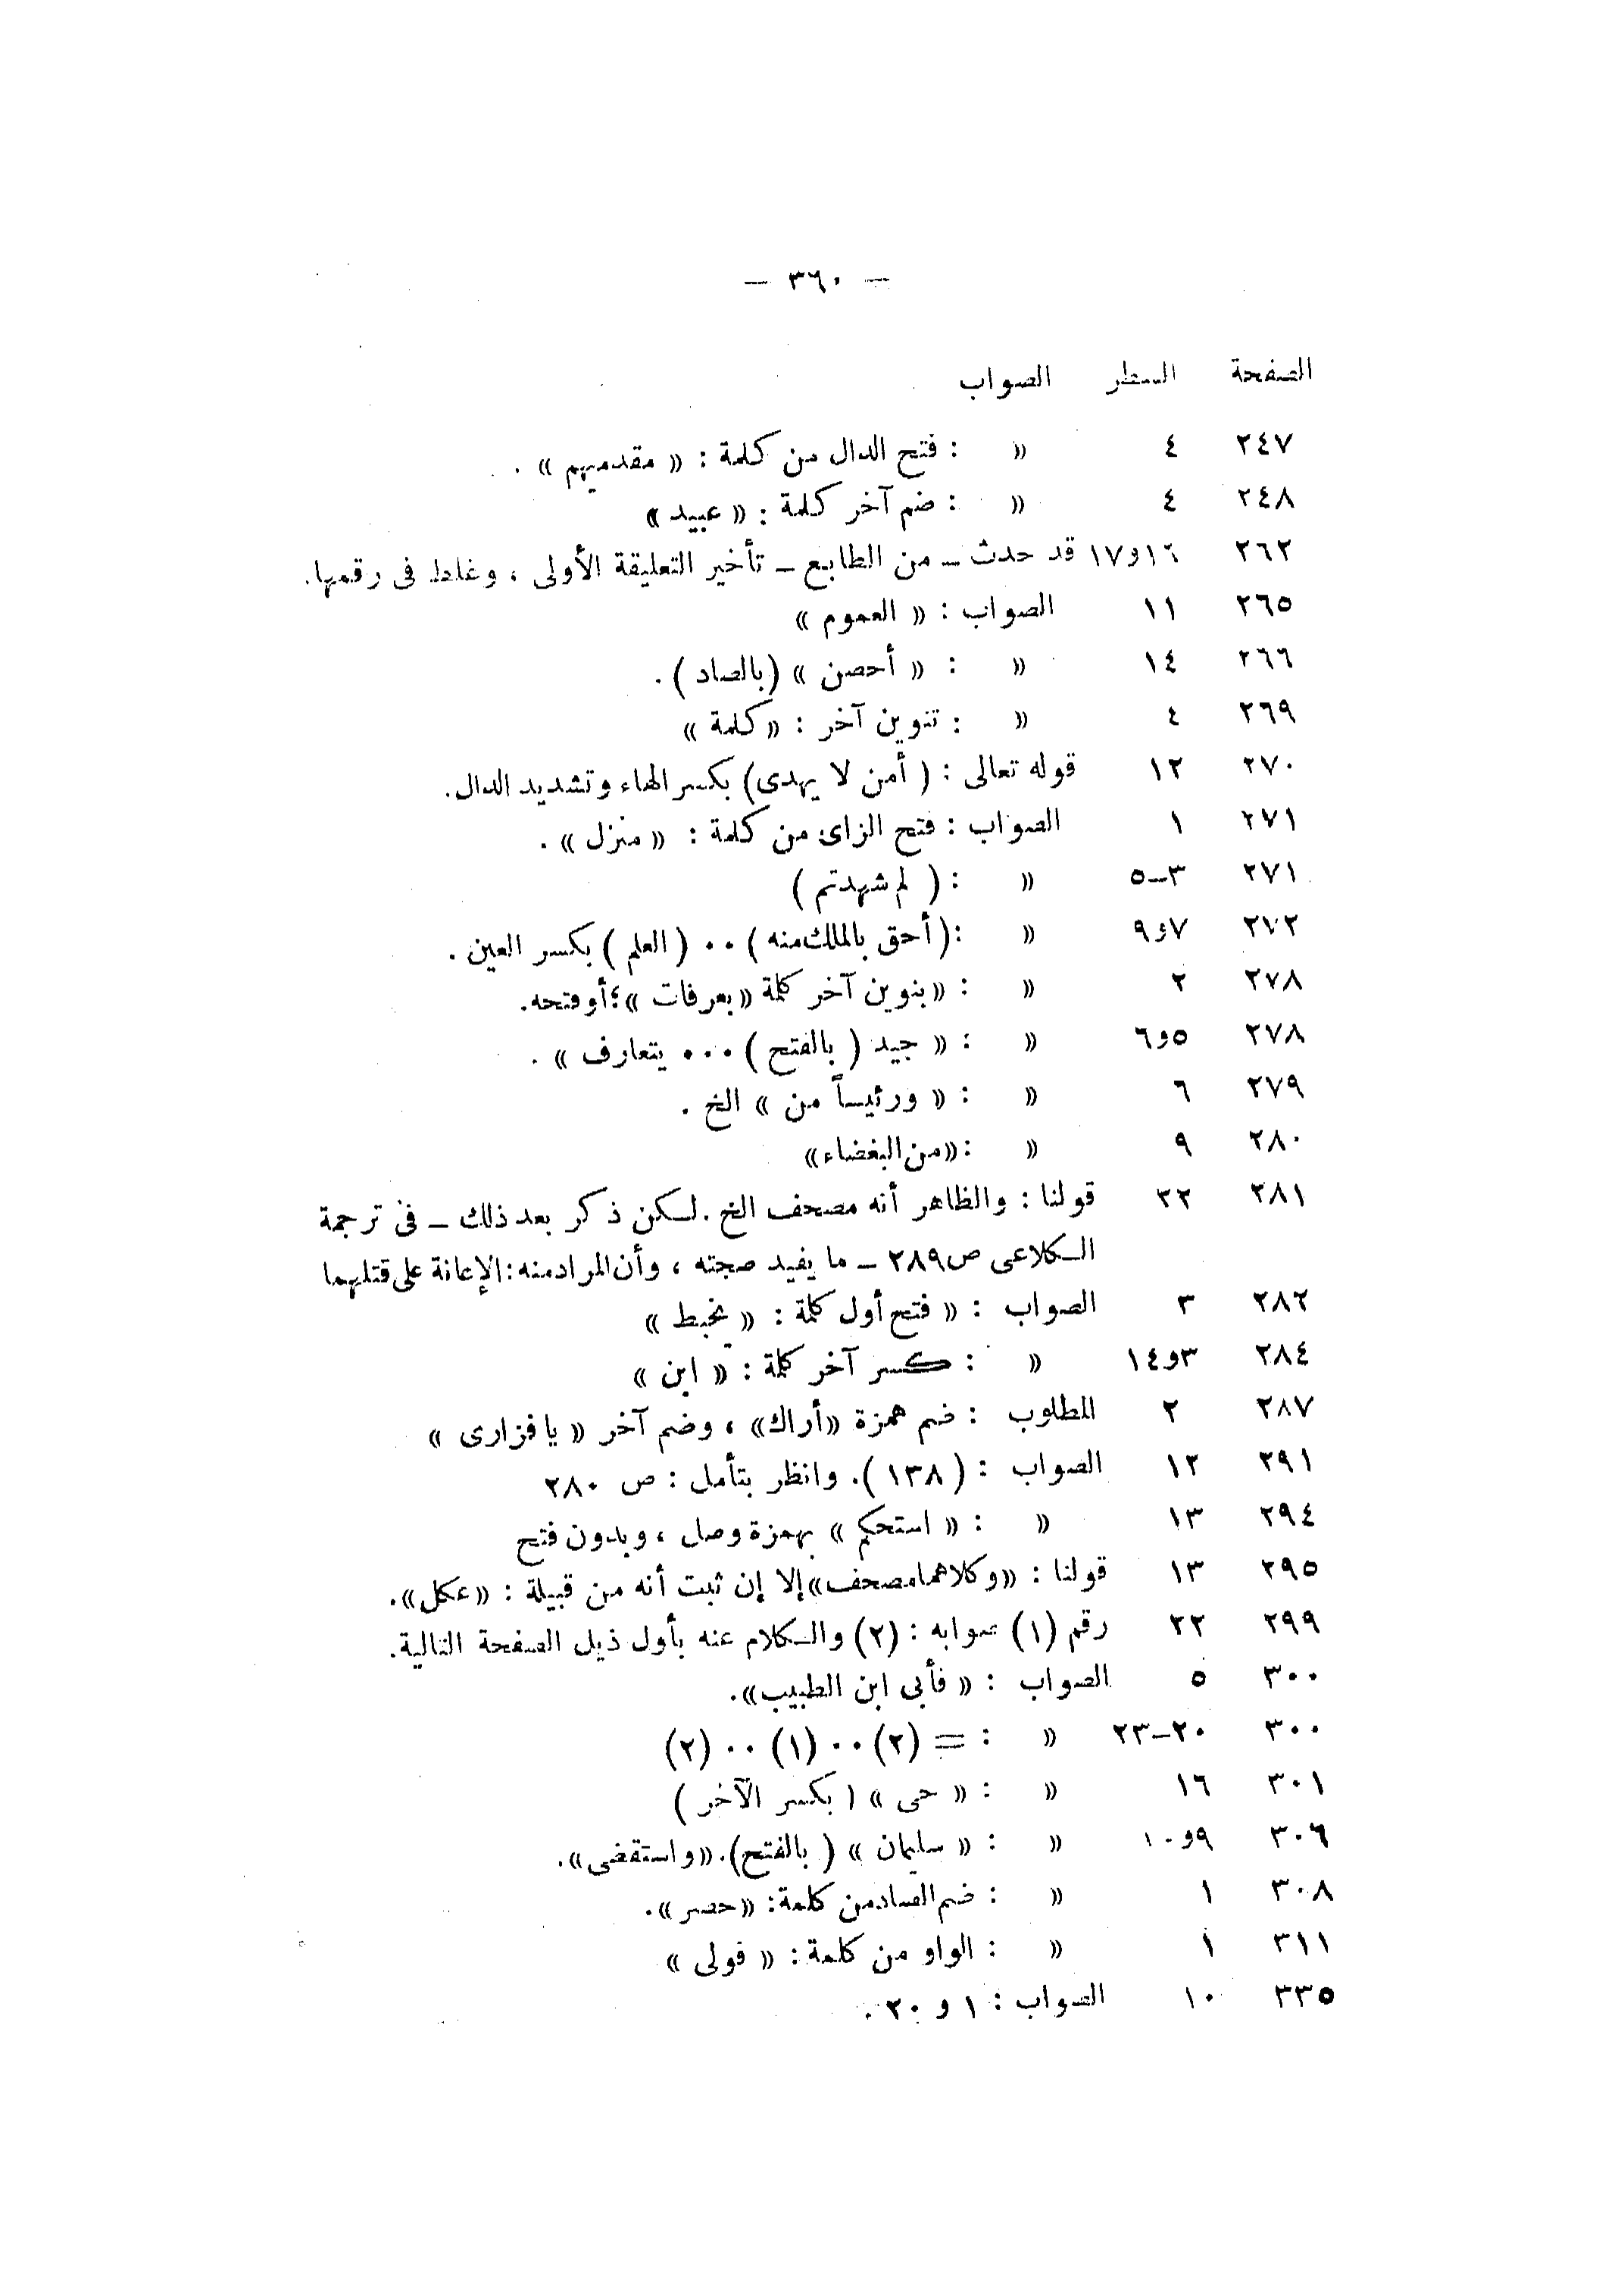 — ٣٦٠ —
الصفحة السطر الصواب
٢٤٧ ٤ » : فتح الدال من كلمة : « مقدميهم » .
٢٤٨ ٤ » : ضم آخر كلمة : « عبيد »
٢٦٢ ١٦و١٧ قد حدث – من الطابع – تأخير التعليقة الأولى ، وغلط فى رقمها.
٢٦٥ ١١ الصواب : « العموم »
٢٦٦ ١٤ » : « أحصن » (بالصاد) .
٢٦٩ ٤ » : تنوين آخر : « كلمة »
٢٧٠ ١٢ قوله تعالى : ( أمن لا يهدى) بكسر الهاء وتشديد الدال.
٢٧١ ١ الصواب : فتح الزاى من كلمة : « منزل » .
٢٧١ ٣–٥ » : ( لم شهدتم )
٢٧٢ ٧و٩ » : (أحق بالملك منه ) ٠٠ ( العلم ) بكسر العين .
٢٧٨ ٢ » : « بنوين آخر كلمة « بعرفات » ؛ أو فتحه.
٢٧٨ ٥و٦ » : « جيد ( بالفتح ) ٠٠٠ يتعارف » .
٢٧٩ ٦ » : « ورئيساً من » الخ .
٢٨٠ ٩ » : «من البغضاء»
٢٨١ ٢٢ قولنا : والظاهر أنه مصحف الخ . لكن ذكر بعد ذلك – فى ترجمة
الكلاعى ص ٢٨٩ – ما يفيد صحته ، وأن المراد منه : الإعانة على قتلهما
٢٨٢ ٣ الصواب : « فتح أول كلمة : « يخبط »
٢٨٤ ٣و١٤ » : كسر آخر كلمة : « ابن »
٢٨٧ ٢ المطلوب : ضم همزة «أراك» ، وضم آخر « يا فزارى »
٢٩١ ١٢ الصواب : ( ١٣٨ ). وانظر بتأمل : ص ٢٨٠
٢٩٤ ١٣ » : « استحكم » بهمزة وصل ، وبدون فتح
٢٩٥ ١٣ قولنا : «وكلاهما مصحف» إلا إن ثبت أنه من قبيلة : «عكل».
٢٩٩ ٢٢ رقم (١) صوابه : (٢) والكلام عنه بأول ذيل الصفحة التالية.
٣٠٠ ٥ الصواب : « فأبى ابن الطبيب».
٣٠٠ ٢٠–٢٣ » : = (٢) ٠٠ (١) ٠٠ (٢)
٣٠١ ١٦ » : « حى » ( بكسر الآخر )
٣٠٦ ٩و١٠ » : « سليمان » ( بالفتح). «واستقضى».
٣٠٨ ١ » : ضم الصاد من كلمة : «حصر».
٣١١ ١ » : الواو من كلمة : « فولى »
٣٣٥ ١٠ الصواب : ١ و ٢٠ .